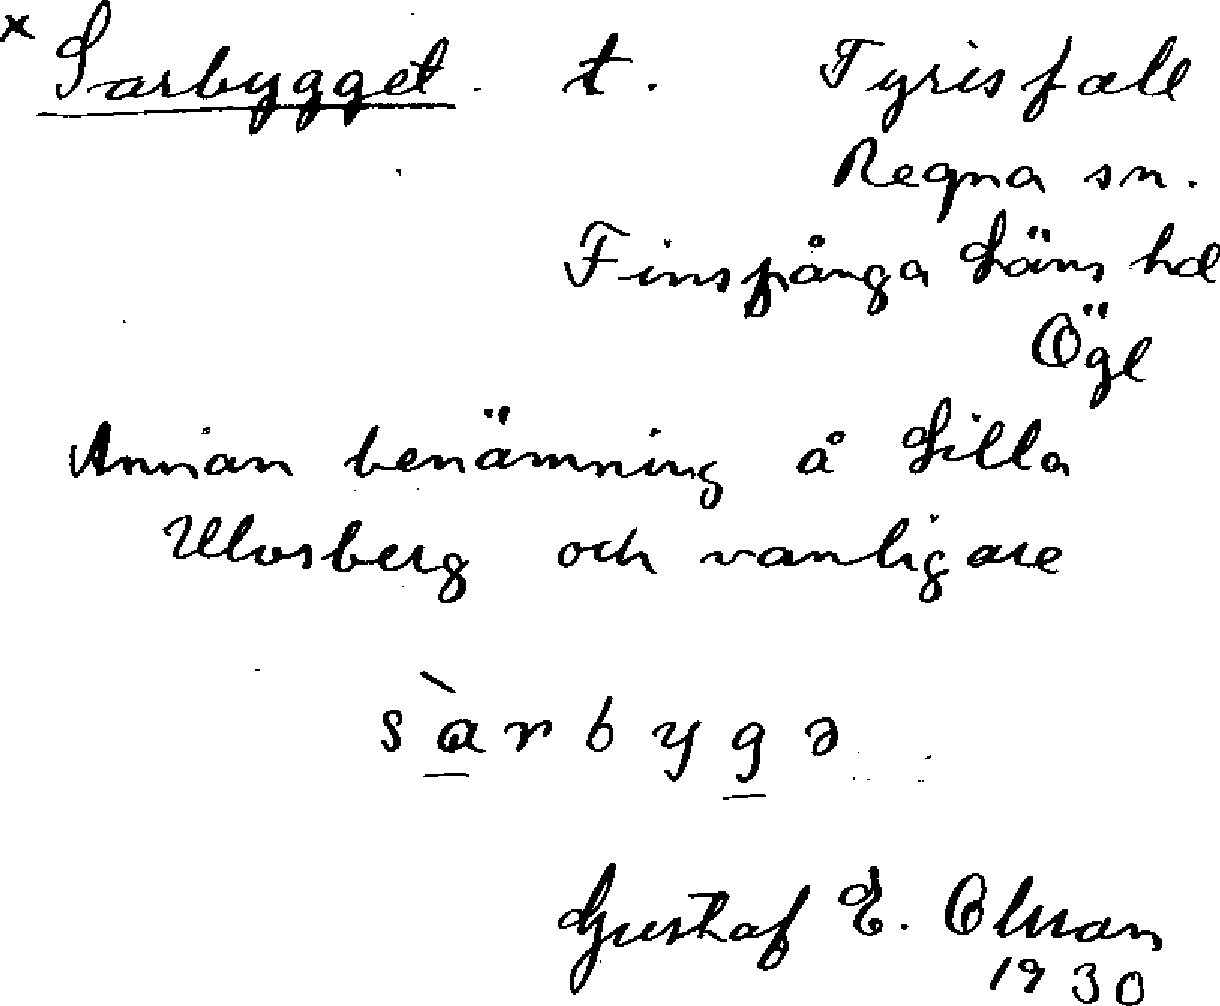 × Sarbygget t. Tyrisfall
Regna sn.
Finspånga Läns hd
Ögl
Annan benämning å Lilla
Ulvsberg och vanligare
sàrbygə
Gustaf E. Olsson
1930